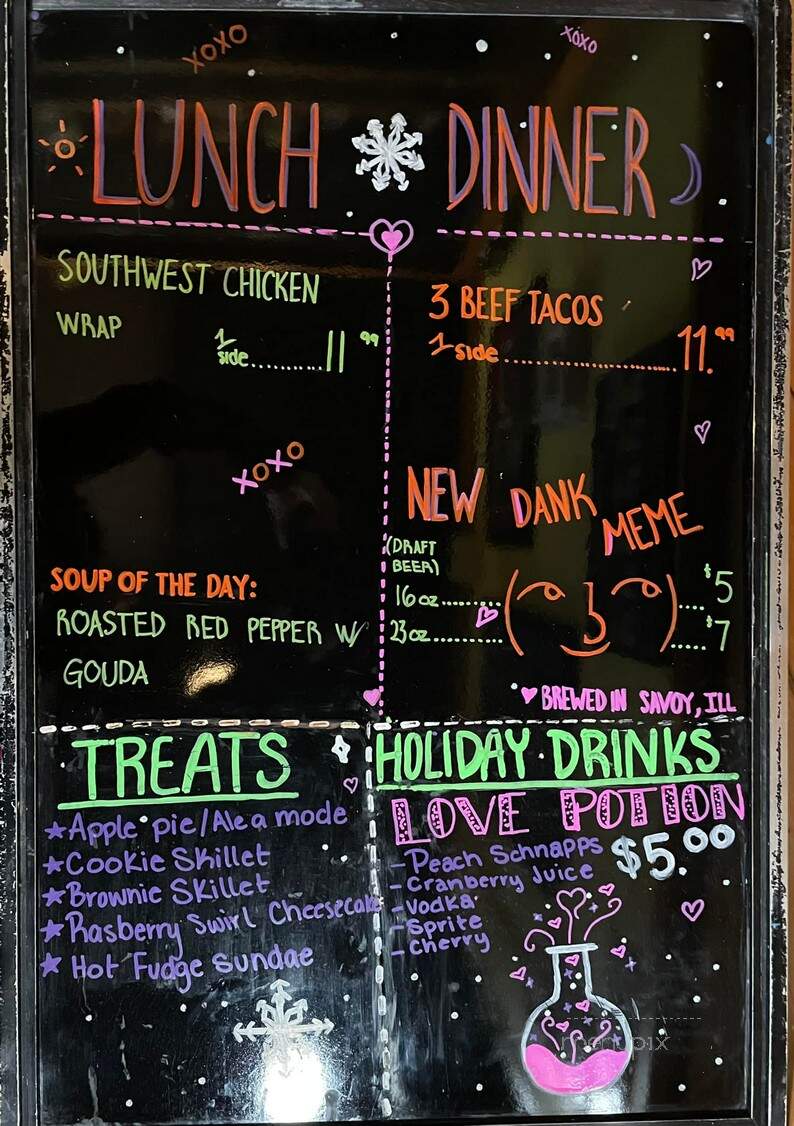 XOXO
XOXO
LUNCH
SOUTHWEST CHICKEN
WRAP
1 side..........11 99
XOXO
SOUP OF THE DAY:
ROASTED RED PEPPER W/
GOUDA
DINNER
3 BEEF TACOS
1 side..........11.99
NEW DANK MEME
(DRAFT
BEER)
16oz..........$5
23oz..........$7
BREWED IN SAVOY, ILL
TREATS
Apple pie/Ale a mode
Cookie Skillet
Brownie Skillet
Rasberry Swirl Cheesecake
Hot Fudge Sundae
HOLIDAY DRINKS
LOVE POTION
$5.00
-Peach Schnapps
-Cranberry Juice
-Vodka
-Sprite
-Cherry
menupix